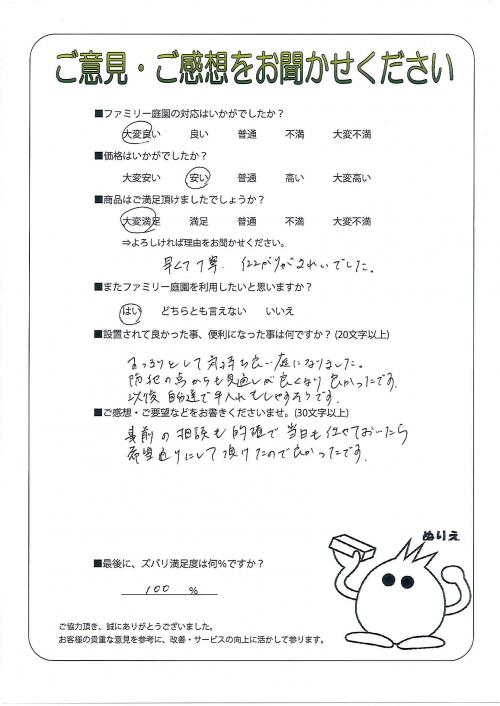 ご意見・ご感想をお聞かせください
■ファミリー庭園の対応はいかがでしたか？
大変良い 良い 普通 不満 大変不満
■価格はいかがでしたか？
大変安い 安い 普通 高い 大変高い
■商品はご満足頂けましたでしょうか？
大変満足 満足 普通 不満 大変不満
⇒よろしければ理由をお聞かせください。
早くて丁寧. 仕上がりがきれいでした。
■またファミリー庭園を利用したいと思いますか？
はい どちらとも言えない いいえ
■設置されて良かった事、便利になった事は何ですか？(20文字以上)
すっきりとして気持ち良い庭になりました。
防犯の点からも見通しが良くなり良かったです.
以後自分達で手入れもしやすそうです.
■ご感想・ご要望などをお書きくださいませ。(30文字以上)
事前の相談も的確で当日も任せておいたら
希望通りにして頂けたので良かったです.
ぬりえ
■最後に、ズバリ満足度は何％ですか？
100 ％
ご協力頂き、誠にありがとうございました。
お客様の貴重な意見を参考に、改善・サービスの向上に活かして参ります。